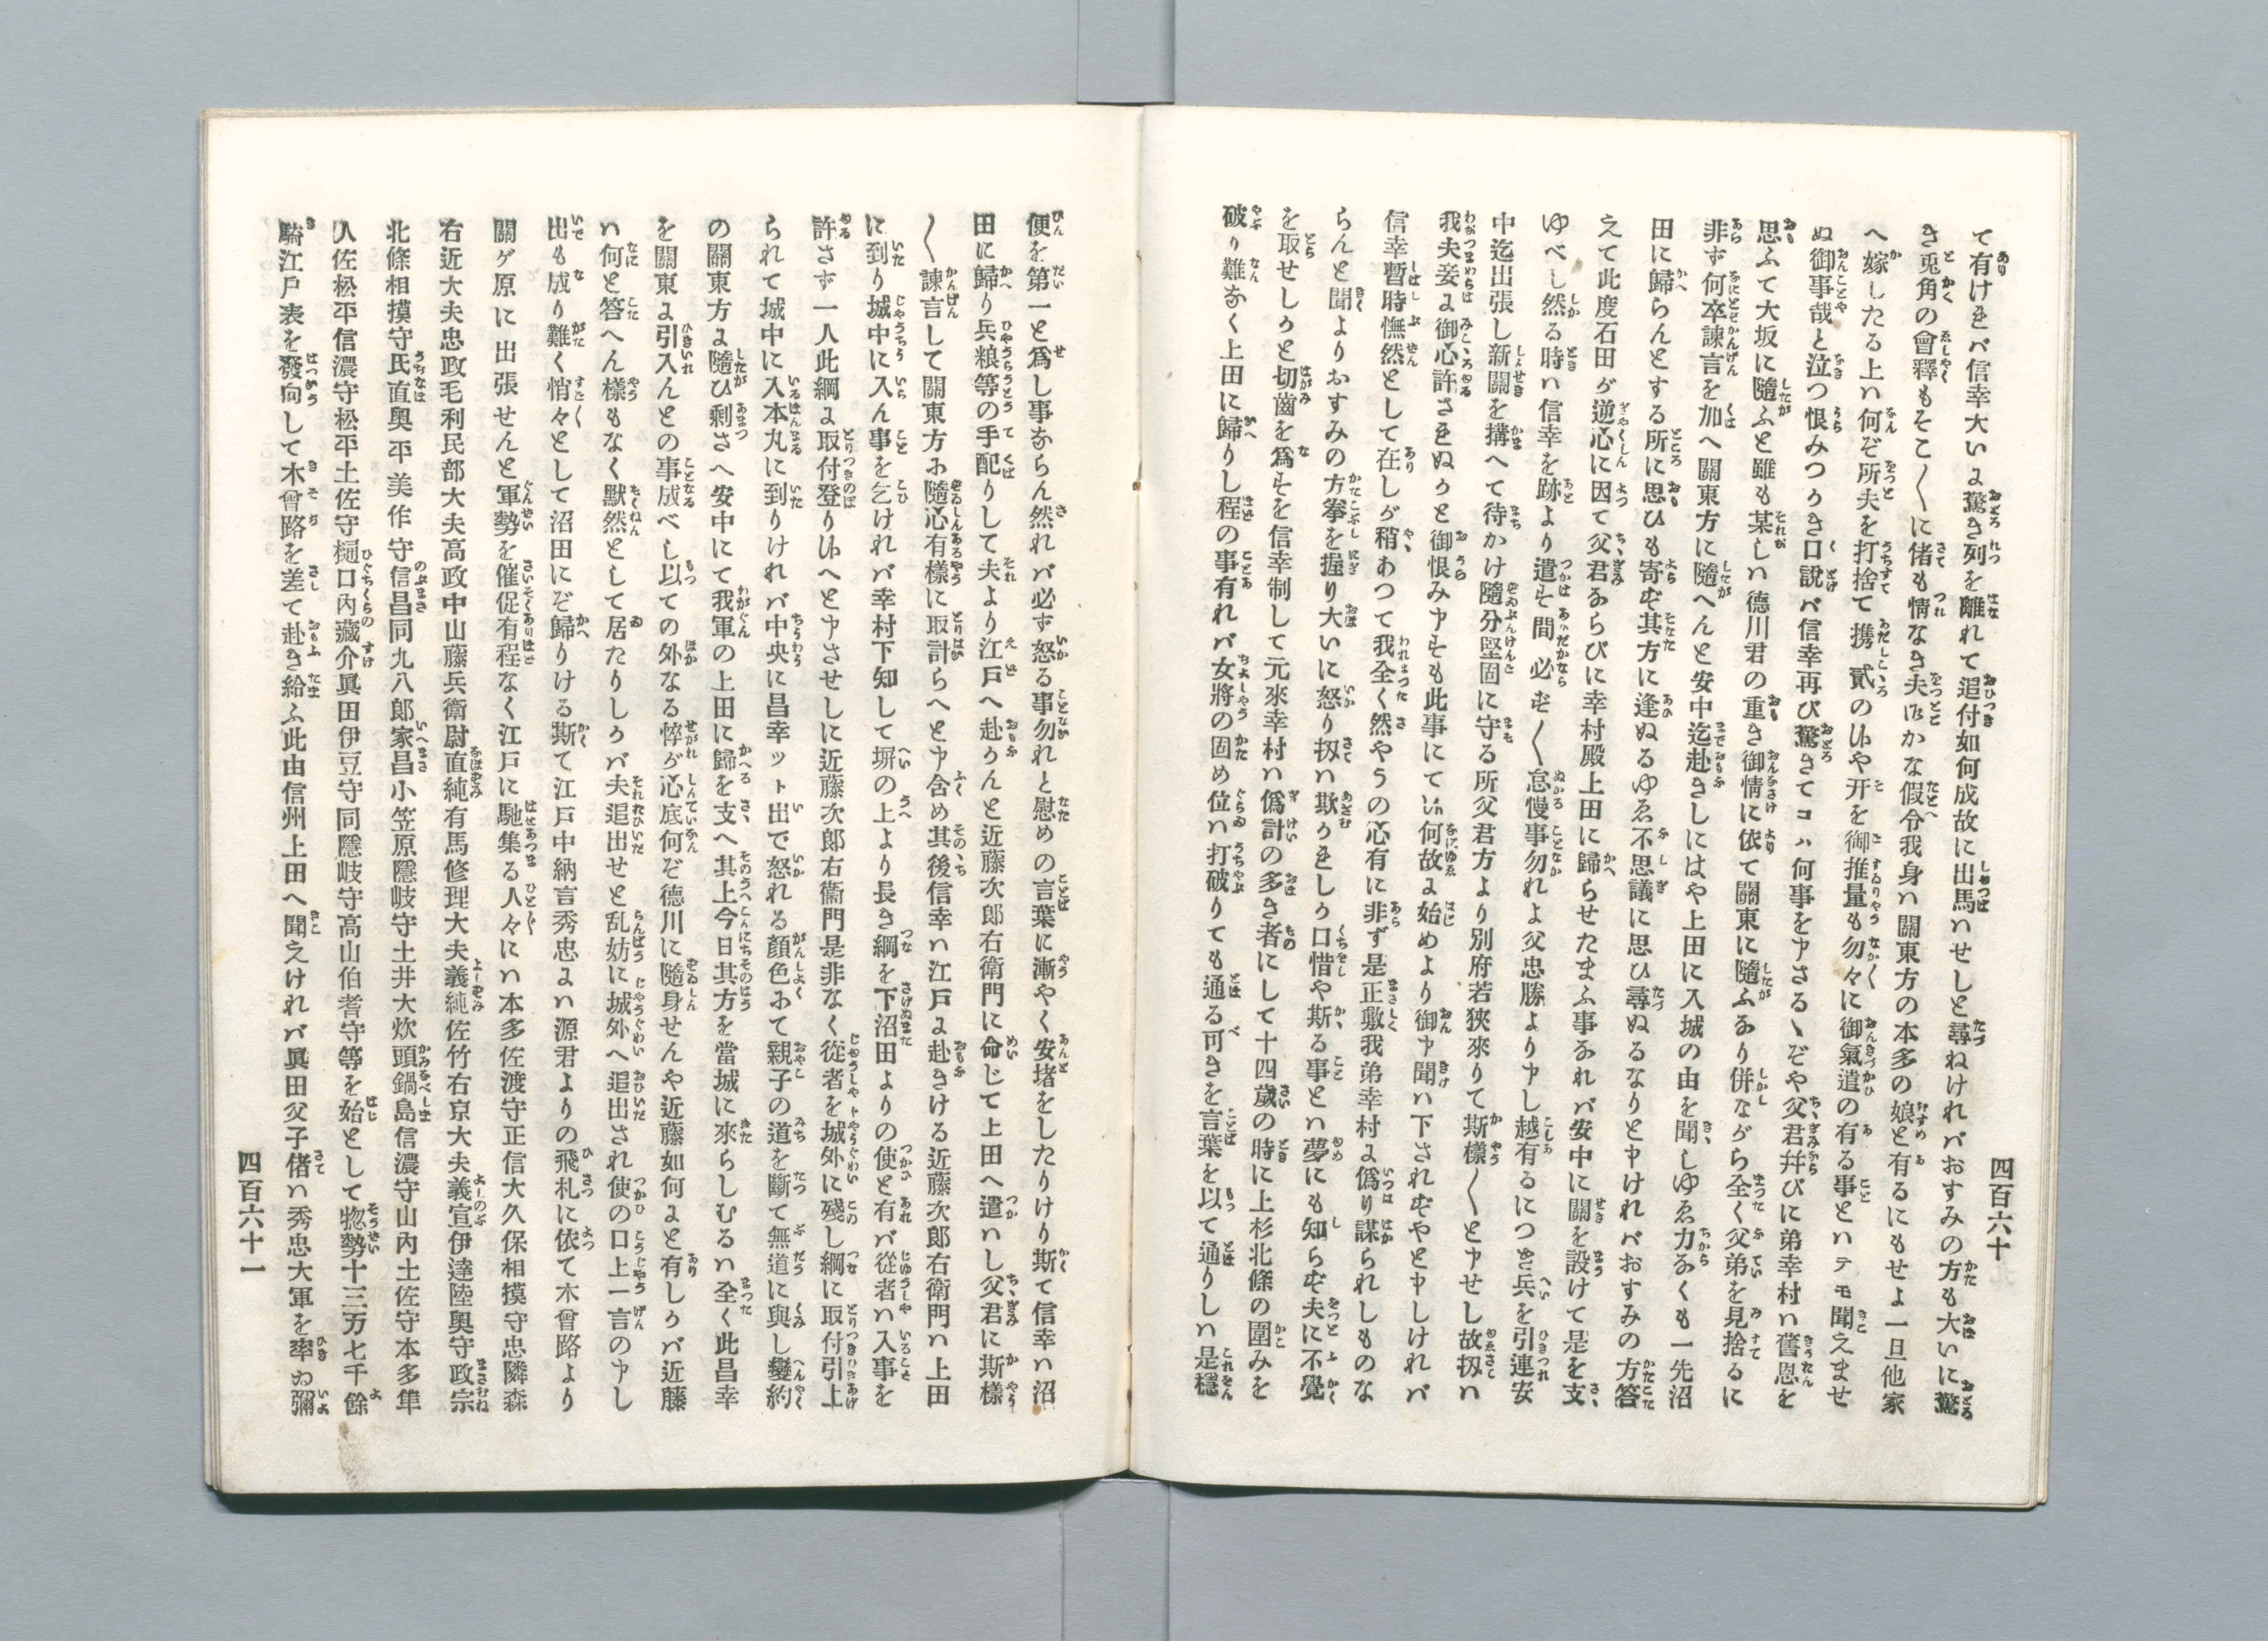 て有けれバ信幸大いに驚き列を離れて追付如何成故に出馬ハせしと尋ねけれバおすみの方も大いに驚
き兎角の會釋もそこ〱に偖も情なき夫かな假令我身ハ關東方の本多の娘と有るにもせよ一旦他家
へ嫁したる上ハ何ぞ所夫を打捨て携貳のいや开を御推量も勿々に御氣遣の有る事とハテモ聞えませ
ぬ御事哉と泣つ恨みつかき口説バ信幸再び驚きてコハ何事を申さるゝぞや父君并びに弟幸村ハ舊恩を
思ふて大坂に隨ふと雖も某しハ德川君の重き御情に依て關東に隨ふあり併ながら全く父弟を見捨るに
非ず何卒諫言を加へ關東方に隨へんと安中迄赴きしにはや上田に入城の由を聞しゆゑ力なくも一先沼
田に歸らんとする所に思ひも寄ず其方に逢ぬるゆゑ不思議に思ひ尋ぬるなりと申けれバおすみの方答
えて此度石田が逆心に因て父君ならびに幸村殿上田に歸らせたまふ事なれバ安中に關を設けて是を支
ゆべし然る時ハ信幸を跡より遣す間必ず〱怠慢事勿れよ父忠勝より申し越有るにつき兵を引連安
中迄出張し新關を搆へて待かけ隨分堅固に守る所父君方より別府若狹來りて斯樣〱と申せし故扨ハ
我夫妾に御心許されぬかと御恨み申すも此事にてい何故に始めより御申聞ハ下されずやと申しけれバ
信幸暫時憮然として在しが稍あつて我全く然やうの心有に非ず是正敷我弟幸村に僞り謀られしものな
らんと聞よりおすみの方拳を握り大いに怒り扨ハ欺かれしか口惜や斯る事とハ夢にも知らず夫に不覺
を取せしかと切齒を爲すを信幸制して元來幸村ハ僞計の多き者にして十四歲の時に上杉北條の圍みを
破り難なく上田に歸りし程の事有れバ女將の固め位ハ打破りても通る可きを言葉を以て通りしハ是穩
四百六十
便を第一と爲し事ならん然れバ必ず怒る事勿れと慰めの言葉に漸やく安堵をしたりけり斯て信幸ハ沼
田に歸り兵粮等の手配りして夫より江戸へ赴かんと近藤次郎右衛門に命じて上田へ遣ハし父君に斯樣
〱諫言して關東方に隨心有樣に取計らへと申含め其後信幸ハ江戸に赴きける近藤次郎右衛門ハ上田
に到り城中に入ん事を乞けれバ幸村下知して塀の上より長き綱を下沼田よりの使と有バ從者ハ入事を
許さず一人此綱に取付登りいへと申させしに近藤次郎右衞門是非なく從者を城外に殘し綱に取付引上
られて城中に入本丸に到りけれバ中央に昌幸ット出で怒れる顏色にて親子の道を斷て無道に與し變約
の關東方に隨ひ剩さへ安中にて我軍の上田に歸を支へ其上今日其方を當城に來らしむるハ全く此昌幸
を關東に引入んとの事成べし以ての外なる悴が心底何ぞ德川に隨身せんや近藤如何にと有しかバ近藤
ハ何と答へん樣もなく默然として居たりしかバ夫追出せと乱妨に城外へ追出され使の口上一言の申し
出も成り難く悄々として沼田にぞ歸りける斯て江戸中納言秀忠にハ源君よりの飛札に依て木曾路より
關ゲ原に出張せんと軍勢を催促有程なく江戸に馳集る人々にハ本多佐渡守正信大久保相摸守忠隣森
右近大夫忠政毛利民部大夫高政中山藤兵衛尉直純有馬修理大夫義純佐竹右京大夫義宣伊達陸奥守政宗
北條相摸守氏直奥平美作守信昌同九八郎家昌小笠原隱岐守土井大炊頭鍋島信濃守山內土佐守本多隼
人佐松平信濃守松平土佐守樋口內藏介眞田伊豆守同隱岐守高山伯耆守等を始として惣勢十三万七千餘
騎江戸表を發向して木曾路を差て赴き給ふ此由信州上田へ聞えけれバ眞田父子偖ハ秀忠大軍を率ゐ彌
四百六十一